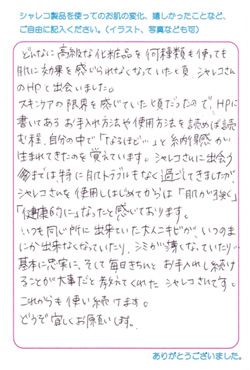 シャレコ製品を使ってのお肌の変化、嬉しかったことなど、
ご自由に記入ください。(イラスト、写真なども可)
どんなに高級な化粧品を何種類も使っても
肌に効果を感じられなくなっていた頃、シャレコさん
のHPと出会いました。
スキンケアの限界を感じていた頃だったので、HPに
書いてあるお手入れ方法や使用方法を読めば読
む程、自分の中で「なるほど…」と納得感が
生まれてきたのを覚えています。シャレコさんに出会う
までは特に肌トラブルもなく過ごしてきましたが
シャレコさんを使用しはじめてからは「肌が強く」
「健康的に」なったと感じております。
いつも同じ所に出来ていた大人ニキビが、いつのま
にか出来なくなっていたり、シミが薄くなっていたり…
基本に忠実に、そして毎日きちんとお手入れし続け
ることが大事だと教えてくれたシャレコさんです。
これからも使い続けます。
どうぞ宜しくお願いします。
ありがとうございました。